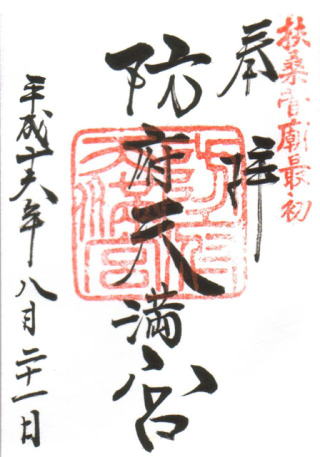 扶桑菅廟最初
奉拝
防府天満宮
防府天満宮
平成十六年八月二十一日